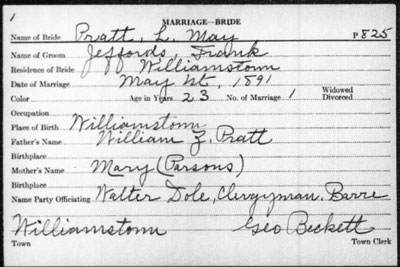 1
MARRIAGE—BRIDE
Name of Bride Pratt, L. May P825
Name of Groom Jeffords, Frank
Residence of Bride Williamstown
Date of Marriage May 1st, 1891
Color Age in Years 23 No. of Marriage 1 Widowed Divorced
Occupation
Place of Birth Williamstown
Father's Name William Z. Pratt
Birthplace
Mother's Name Mary (Parsons)
Birthplace
Name Party Officiating Walter Dole, Clergyman, Barre
Williamstown Geo Beckett
Town Town Clerk